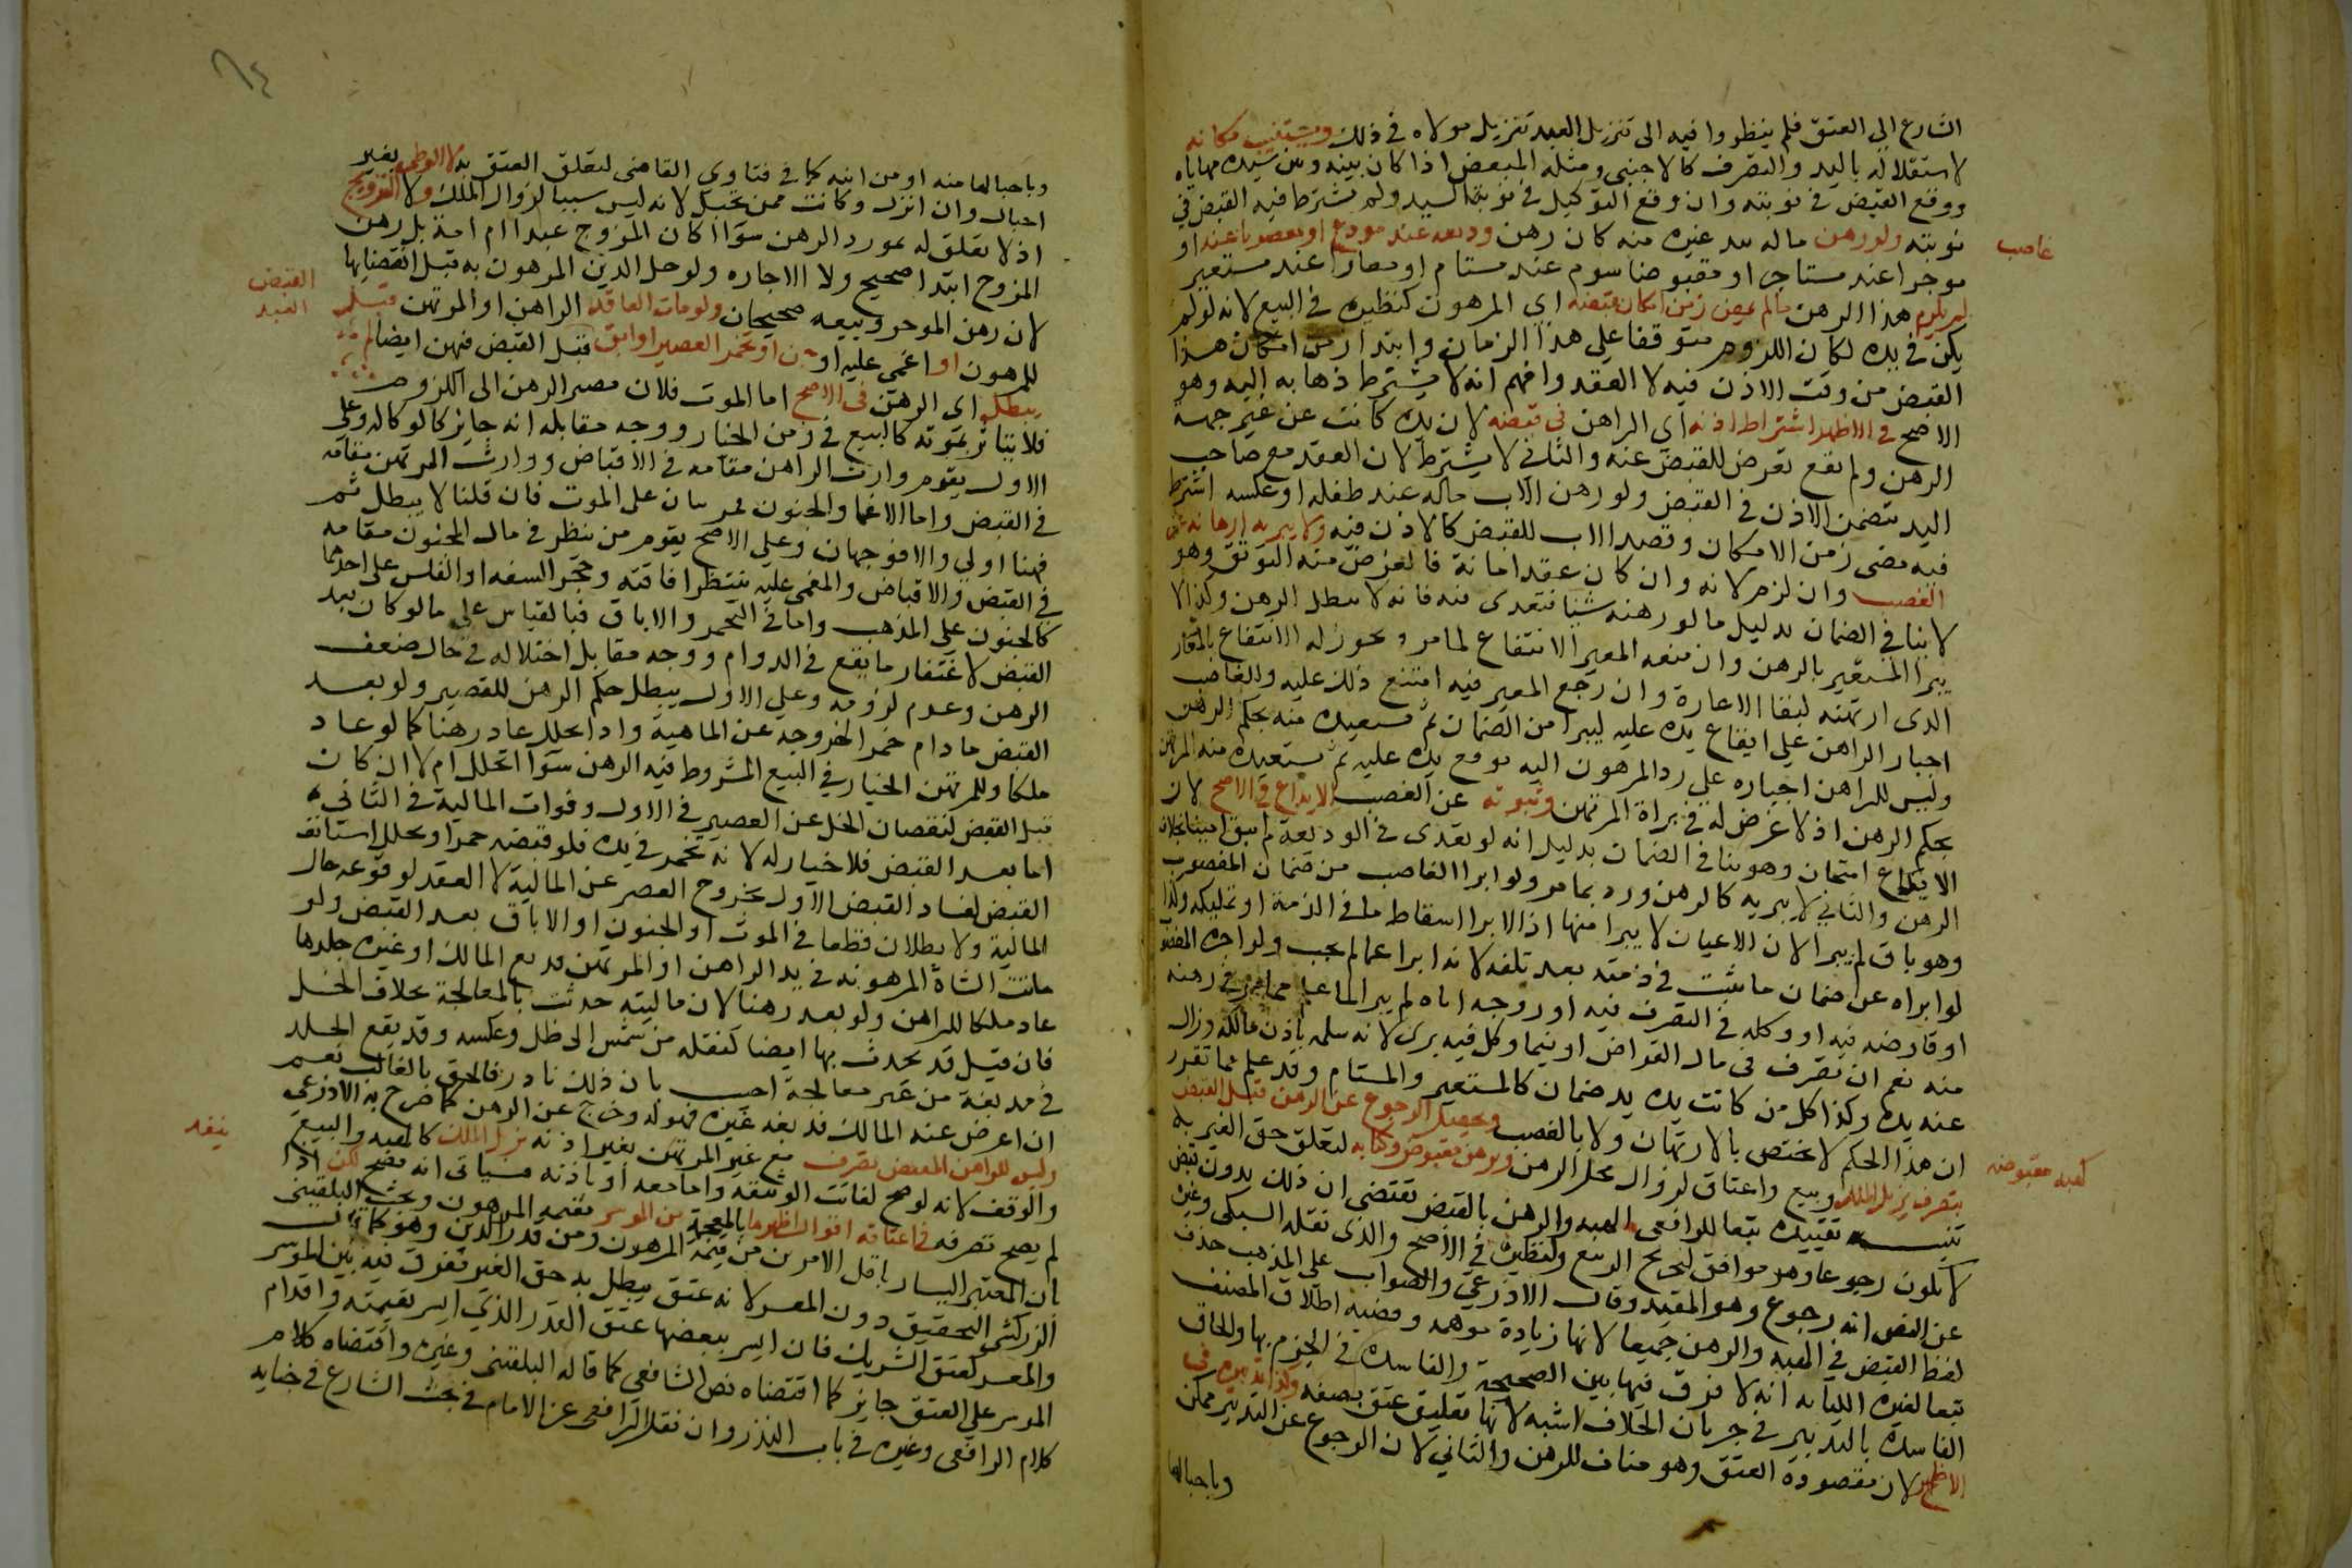 الشارع الى العتق فلم ينظروا فيه الى تنزيل العبد تنزيل مولاه في ذلك ويستنيب مكاتبه
لاستقلاله باليد والتصرف كالاجنبي ومثله المبعض اذا كان بينه وبين سيده مهاياة
ووقع القبض في نوبته وان وقع التوكيل في نوبة السيد ولم يشترط فيه القبض في
نوبته ولو رهن ماله بيد غيره منه كان رهن وديعه عند مودع او مغصوبا عند او
غاصب
موجرا عند مستاجر او مقبوضا سوم عند مستام او معارا عند مستعير
لم يلزم هذا الرهن مالم يمض زمن امكان قبضه اي المرهون كنظيره في البيع لانه لو لم
يكن في يده لكان اللزوم متوقفا على هذا الزمان وابتدا زمن امكان هذا
القبض من وقت الاذن فيه لا العقد وافهم انه لا يشترط ذهابه اليه وهو
الاصح في الاظهر اشتراط اذنه اي الراهن في قبضه لان يده كانت عن غير جهة
الرهن ولم يقع تعرض للقبض عنه والثاني لا يشترط لان العقد مع صاحب
اليد يتضمن الاذن في القبض ولو رهن الاب ماله عند طفله او عكسه اشترط
فيه مضي زمن الامكان وقصد الاب للقبض كالاذن فيه ولا يبريه ارتهانه عن
الغصب وان لزم لانه وان كان عقد امانة فالغرض منه التوثق وهو
لا ينافي الضمان بدليل ما لو رهنه شيئا فتعدى فيه فانه لا يبطل الرهن وكذا لا
يبرا المستعير بالرهن وان منعه المعير الانتفاع لما مر ويجوز له الانتفاع بالمعار
الذي ارتهنه لبقا الاعارة وان رجع المعير فيه امتنع ذلك عليه وللغاصب
اجبار الراهن على ايقاع يده عليه ليبرا من الضمان ثم يستعيده منه بحكم الرهن
وليس للراهن اجباره على رد المرهون اليه يوقع يده عليه ثم يستعيده منه المرتهن
بحكم الرهن اذ لا غرض له في براة المرتهن ويبريه عن الغصب الايداع في الاصح لان
الايداع ائتمان وهو ينافي الضمان بدليل انه لو تعدى في الوديعة لم يبق امينا بخلاف
الرهن والثاني لا يبريه كالرهن ورد بما مر ولو ابرا الغاصب من ضمان المغصوب
وهو باق لم يبرا لان الاعيان لا يبرا منها اذ الابرا اسقاط ما في الذمة او تمليكه وكذا
لو ابراه عن ضمان ما يثبت في ذمته بعد تلفه لانه ابرا عما لم يجب ولو اجره المغصوب
او قارضه فيه او وكله في التصرف فيه او زوجه اياه لم يبرا لما علم مما مر في رهنه
منه نعم ان تصرف في مال القراض او فيما وكل فيه بري لانه سلمه باذن مالكه وزال
عنه يده وكذا كل من كانت يده يد ضمان كالمستعير والمستام وقد علم مما تقرر
ان هذا الحكم لا يختص بالارتهان ولا بالغصب ويحصل الرجوع عن الرهن قبل القبض
كهبه مقبوضه
بتصرف يزيل الملك وبيع واعتاق لزوال محل الرهن وبرهن مقبوض وكتابه لتعلق حق الغير به
تنبيه تقييده تبعا للرافعي الهبه والرهن بالقبض تقتضي ان ذلك بدون قبض
لا يكون رجوعا وهو موافق لتخريج الربيع ولنظيره في الاصح والذي نقله السبكي وغيره
عن النص انه رجوع وهو المعتمد وقال الاذرعي والصواب على المذهب حذف
لفظ القبض في الهبه والرهن جميعا لانها زيادة موهمه وقضية اطلاق المصنف
تبعا لغيره الكتابه انه لا فرق فيها بين الصحيحة والفاسدة في الجزم بها والحاق
الفاسدة بالتدبير في جريان الخلاف اشبه لانها تعليق عتق بصفه وكذا تدبيره في
الاظهر لان مقصوده العتق وهو مناف للرهن والثاني لان الرجوع عن التدبير ممكن
وباحبالها
وباحبالها منه او من ابنه كما في فتاوي القاضي لتعلق العتق به لا الوطي بغير
احبال وان انزل وكانت ممن تحبل لانه ليس سببا لزوال الملك ولا التزويج
اذ لا تعلق له بمورد الرهن سوآ اكان المزوج عبدا ام امة بل رهن
المزوج ابتدا صحيح ولا الاجاره ولو حل الدين المرهون به قبل انقضايها
لان رهن الموجر وبيعه صحيحان ولو مات العاقد الراهن او المرتهن قبل
القبض
العبد
للمرهون او اغمى عليه او جن او تخمر العصير او ابق قبل القبض فيهن ايضا لم
يبطل اي الرهن في الاصح اما الموت فلان مصير الرهن الى اللزوم
فلا يتاثر بموته كالبيع في زمن الخيار ووجه مقابله انه جايز كالوكاله وعلى
الاول يقوم وارث الراهن مقامه في الاقباض ووارث المرتهن مقامه
في القبض واما الاغما والجنون مرتبان على الموت فان قلنا لا يبطل ثم
فهنا اولى والا فوجهان وعلى الاصح يقوم من ينظر في مال المجنون مقامه
في القبض والاقباض والمغمى عليه تنتظر افاقته وحجر السفه او الفلس على احدهما
كالجنون على المذهب واما في التخمر والاباق فبالقياس على ما لو كان بعد
القبض لاغتفار ما يقع في الدوام ووجه مقابل اختلاله في حال ضعف
الرهن وعدم لزومه وعلى الاول يبطل حكم الرهن للقصير ولو بعد
القبض ما دام خمرا لخروجه عن المالية واذا تخلل عاد رهنا كما لو عاد
ملكا وللمرتهن الخيار في البيع المشروط فيه الرهن سوآ اتخلل ام لا ان كان
قبل القبض لنقصان الخل عن العصير في الاول وفوات المالية في الثاني
اما بعد القبض فلا خيار له لانه تخمر في يده فلو قبضه خمرا وتخلل استانف
القبض لفساد القبض الاول بخروج العصر عن المالية لا العقد لوقوعه حال
المالية ولا بطلان قطعا في الموت او الجنون او الاباق بعد القبض ولو
ماتت الشاة المرهونه في يد الراهن او المرتهن فدبغ المالك او غيره جلدها
عاد ملكا للراهن ولم يعد رهنا لان ماليته حدثت بالمعالجة بخلاف الخل
فان قيل قد تحدث بها ايضا كنقله من شمس الى ظل وعكسه وقد يقع الجلد
في مدبغة من غير معالجة اجيب بان ذلك نادر فالحق بالغالب نعم
ان اعرض عنه المالك فدبغه غيره فهو له وخرج عن الرهن كما صرح به الاذرعي
وليس للراهن المقبض تصرف مع غير المرتهن بغير اذنه يزيل الملك كالهبه والبيع
ينفذ
والوقف لانه لو صح لفاتت الوثيقه واما معه او باذنه فسياتي انه يصح لكن اذا
لم يصح تصرفه في اعتاقه اقوال اظهرها بالمعجمة من الموسر بقيمه المرهون وبحث البلقيني
بان المعتبر اليسار باقل الامرين من قيمة المرهون ومن قدر الدين وهو كما قال
الزركشي التحقيق دون المعسر لانه عتق يبطل به حق الغير ففرق فيه بين الموسر
والمعسر كعتق الشريك فان ايسر ببعضها عتق القدر الذي ايسر بقيمته واقدام
الموسر على العتق جايز كما اقتضاه نص الشافعي كما قاله البلقيني وغيره واقتضاه كلام
كلام الرافعي وغيره في باب النذر وان نقل الرافعي عن الامام في بحث الشارع في جنايه